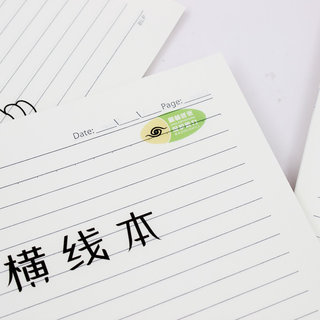 Date: \ \ Page:
横线本